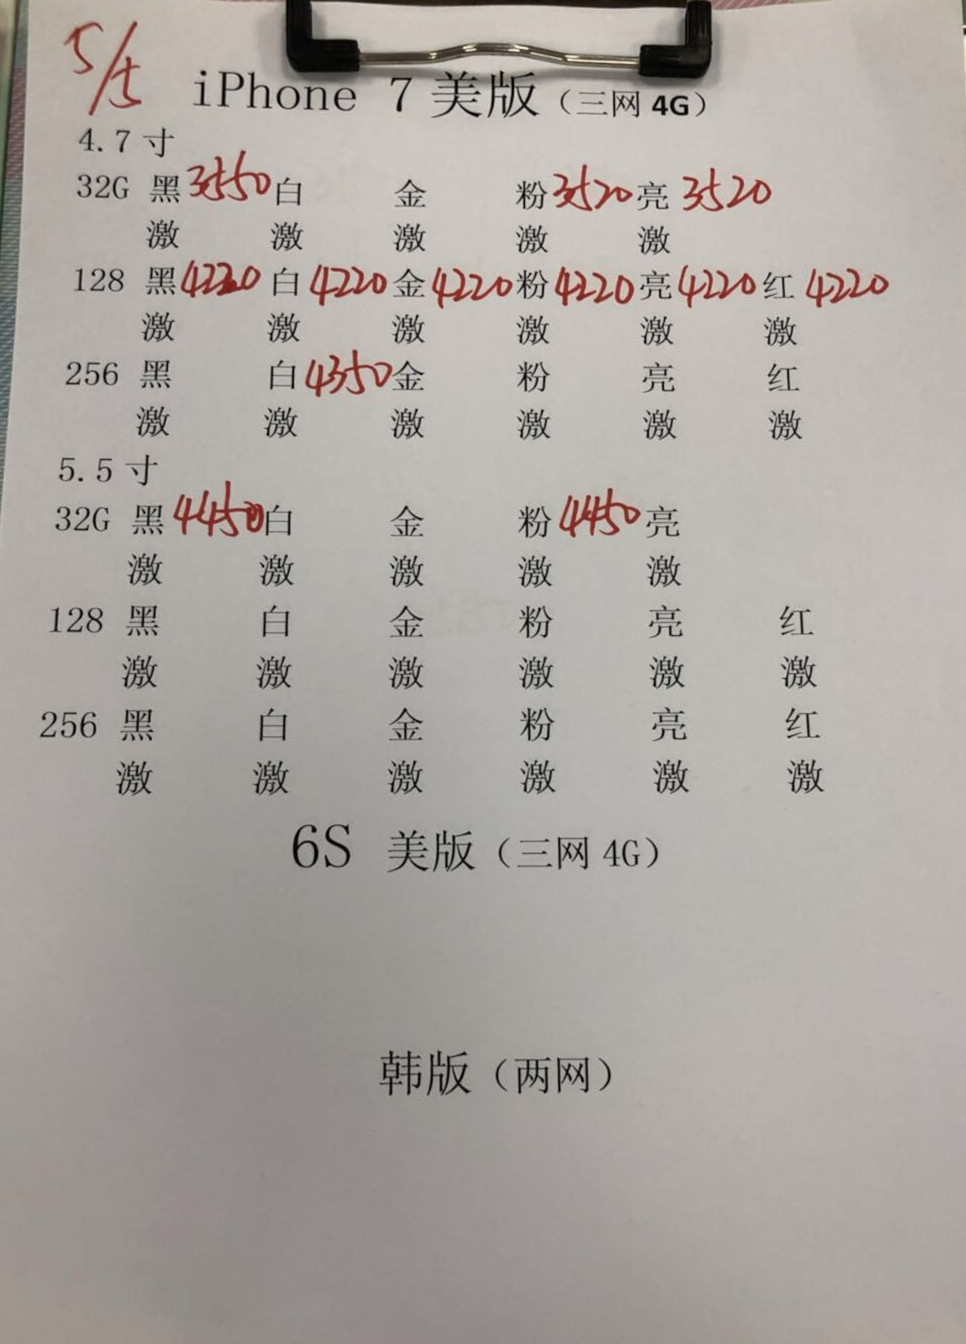 5/5
iPhone 7 美版（三网 4G）
4.7 寸
32G 黑 3550 白 金 粉 3520 亮 3520
激 激 激 激 激
128 黑 4220 白 4220 金 4220 粉 4220 亮 4220 红 4220
激 激 激 激 激 激
256 黑 白 4350 金 粉 亮 红
激 激 激 激 激 激
5.5 寸
32G 黑 4450 白 金 粉 4450 亮
激 激 激 激 激
128 黑 白 金 粉 亮 红
激 激 激 激 激 激
256 黑 白 金 粉 亮 红
激 激 激 激 激 激
6S 美版（三网 4G）
韩版（两网）